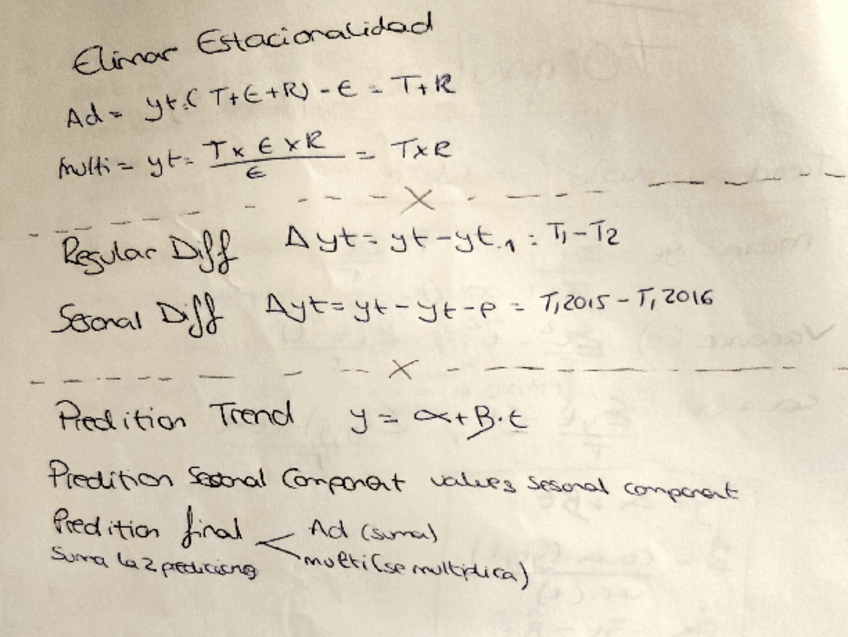 Elimar Estacionalidad
Ad = yt=( T+E+R) - E = T+R
Multi = yt= T x E x R / E = TxR
x
Regular Diff Δyt = yt - yt-1 = T1 - T2
Sesonal Diff Δyt = yt - yt-p = T1 2015 - T1 2016
x
Predition Trend y = α + B·t
Predition Sesonal Component values sesonal component
Predition final < Ad (suma)
Suma la 2 multi (se multiplica)